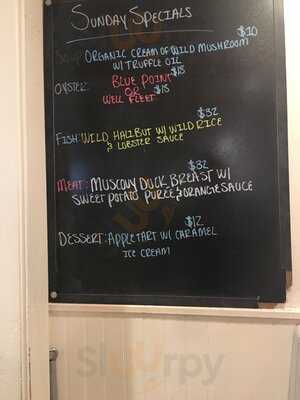 SUNDAY SPECIALS
$10
SOUP: ORGANIC CREAM OF WILD MUSHROOM
W/ TRUFFLE OIL
OYSTER: BLUE POINT $18
OR
WELL FLEET $18
$32
FISH: WILD HALIBUT W/ WILD RICE
& LOBSTER SAUCE
$32
MEAT: MUSCOVY DUCK BREAST W/
SWEET POTATO PUREE & ORANGE SAUCE
$12
DESSERT: APPLE TART W/ CARAMEL
ICE CREAM
sluurpy